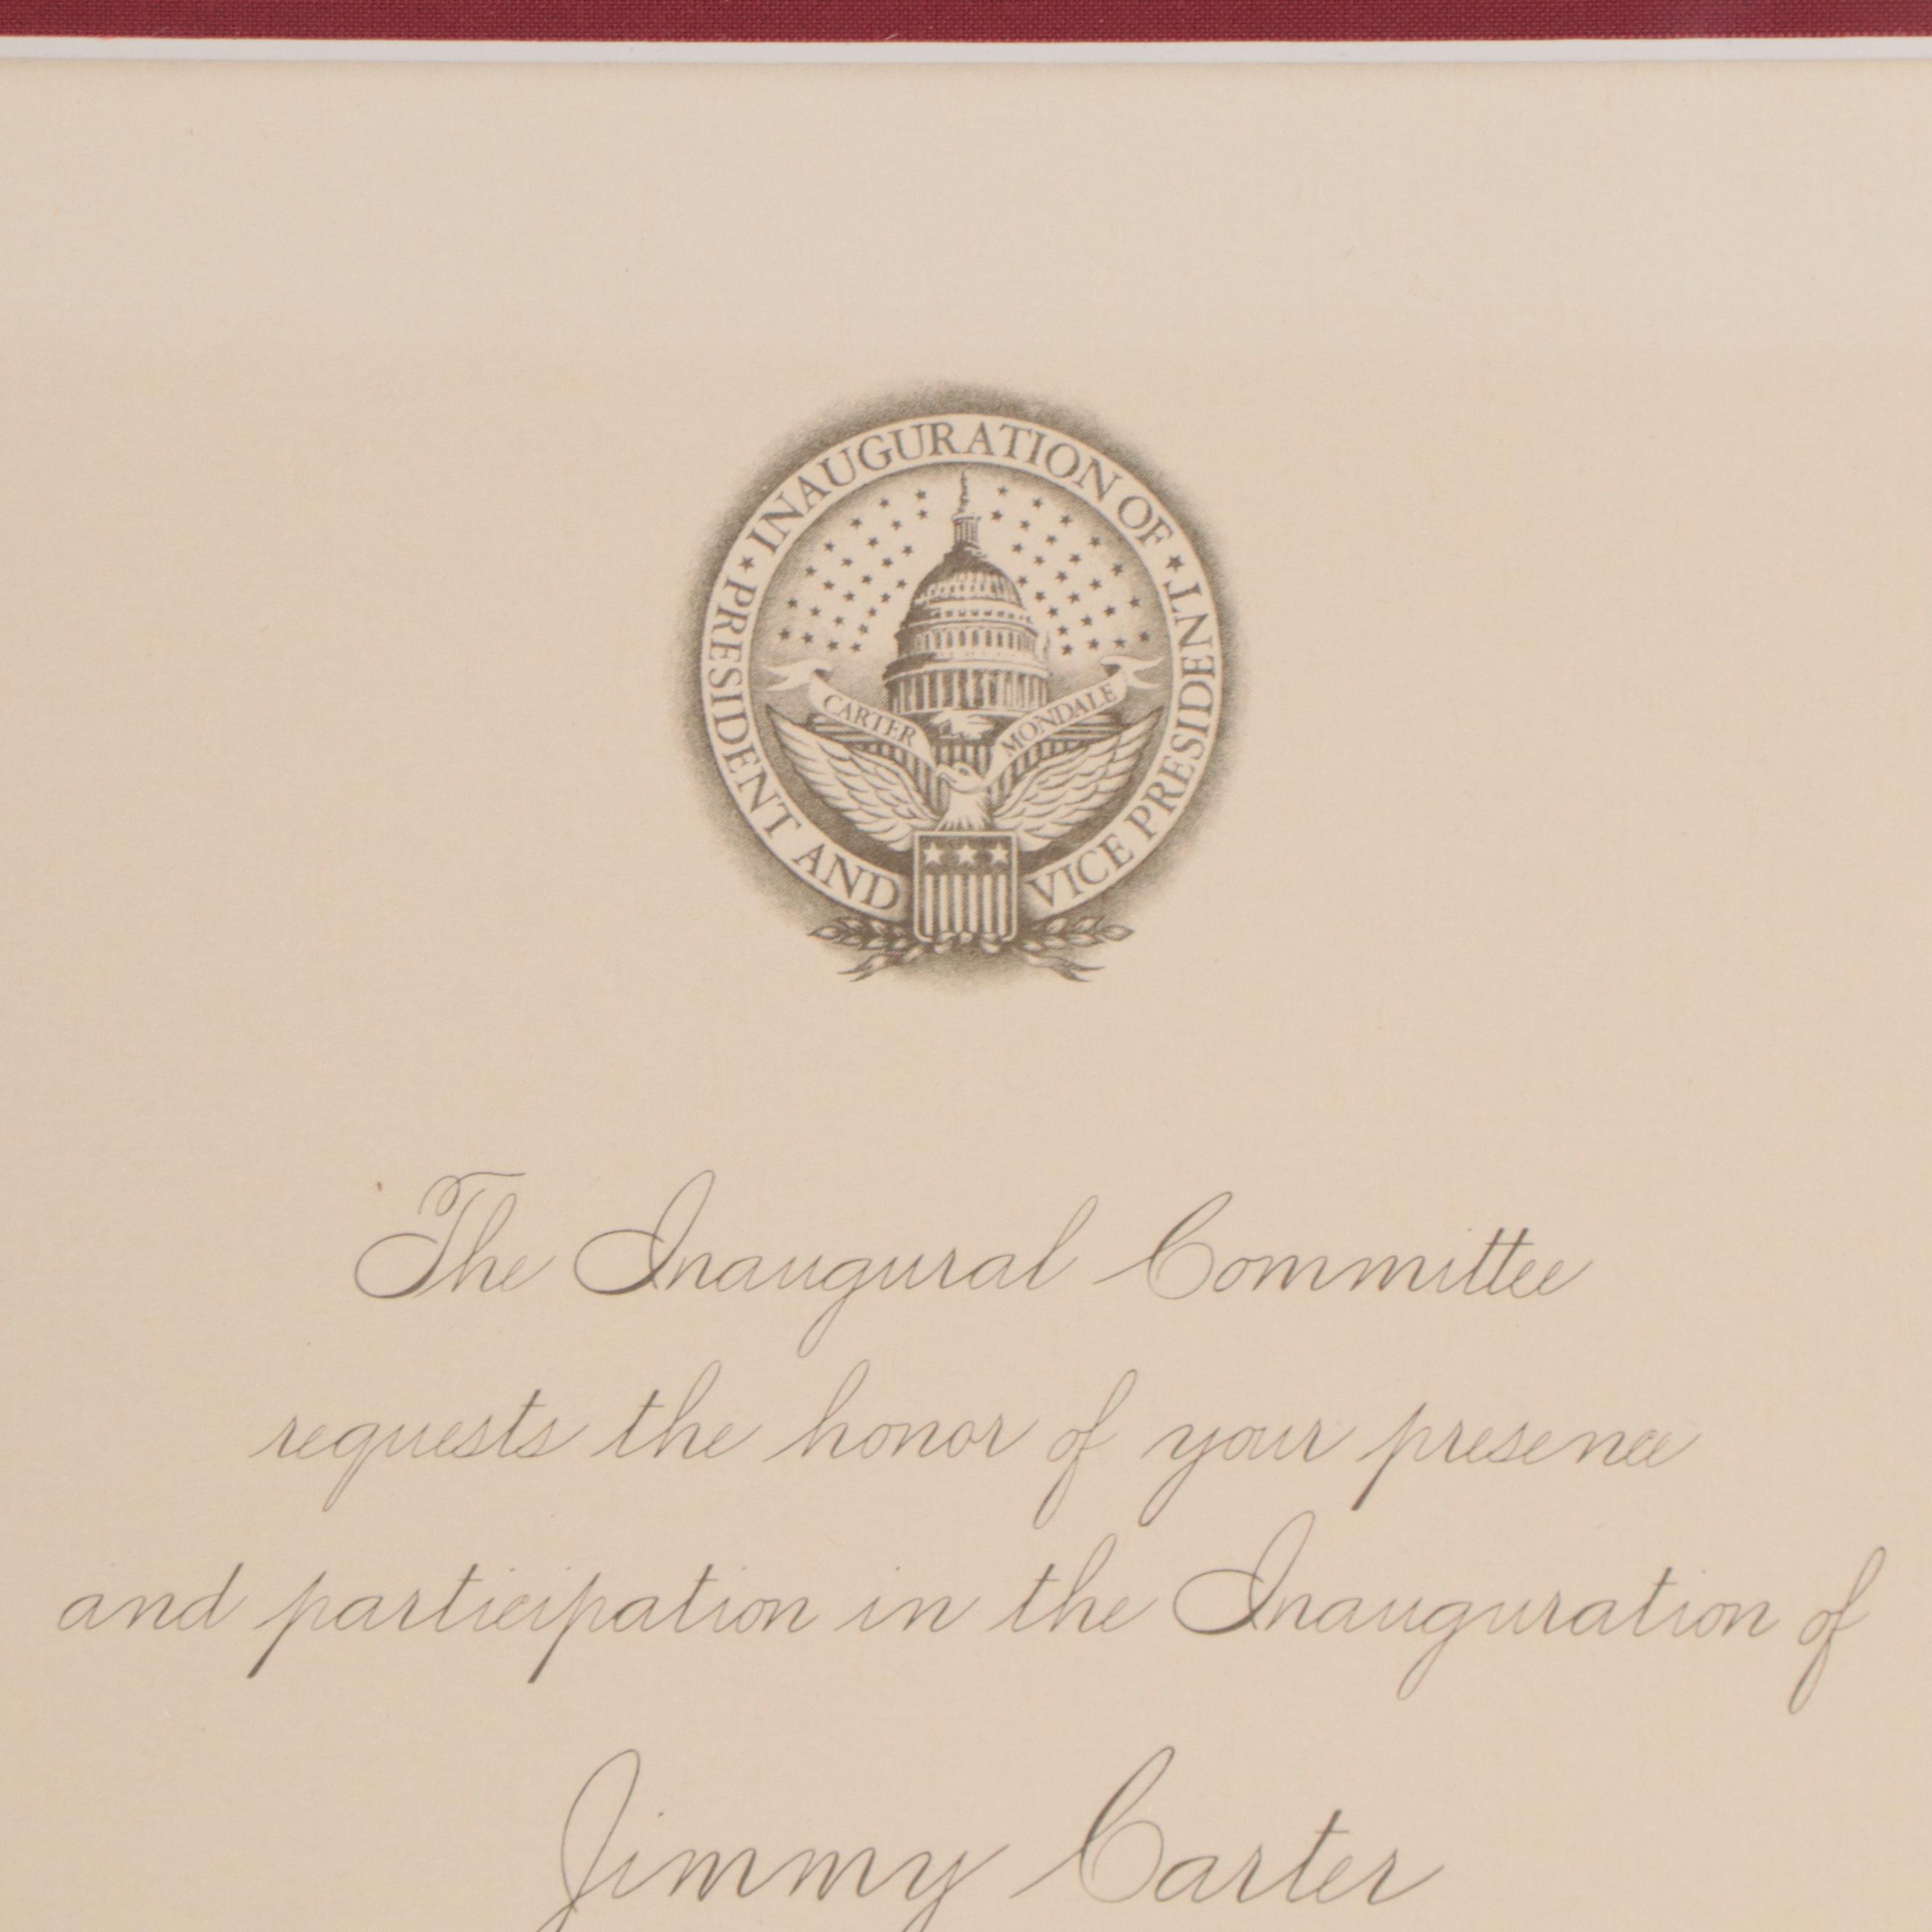 INAUGURATION OF
PRESIDENT AND VICE PRESIDENT
CARTER MONDALE
The Inaugural Committee
requests the honor of your presence
and participation in the Inauguration of
Jimmy Carter